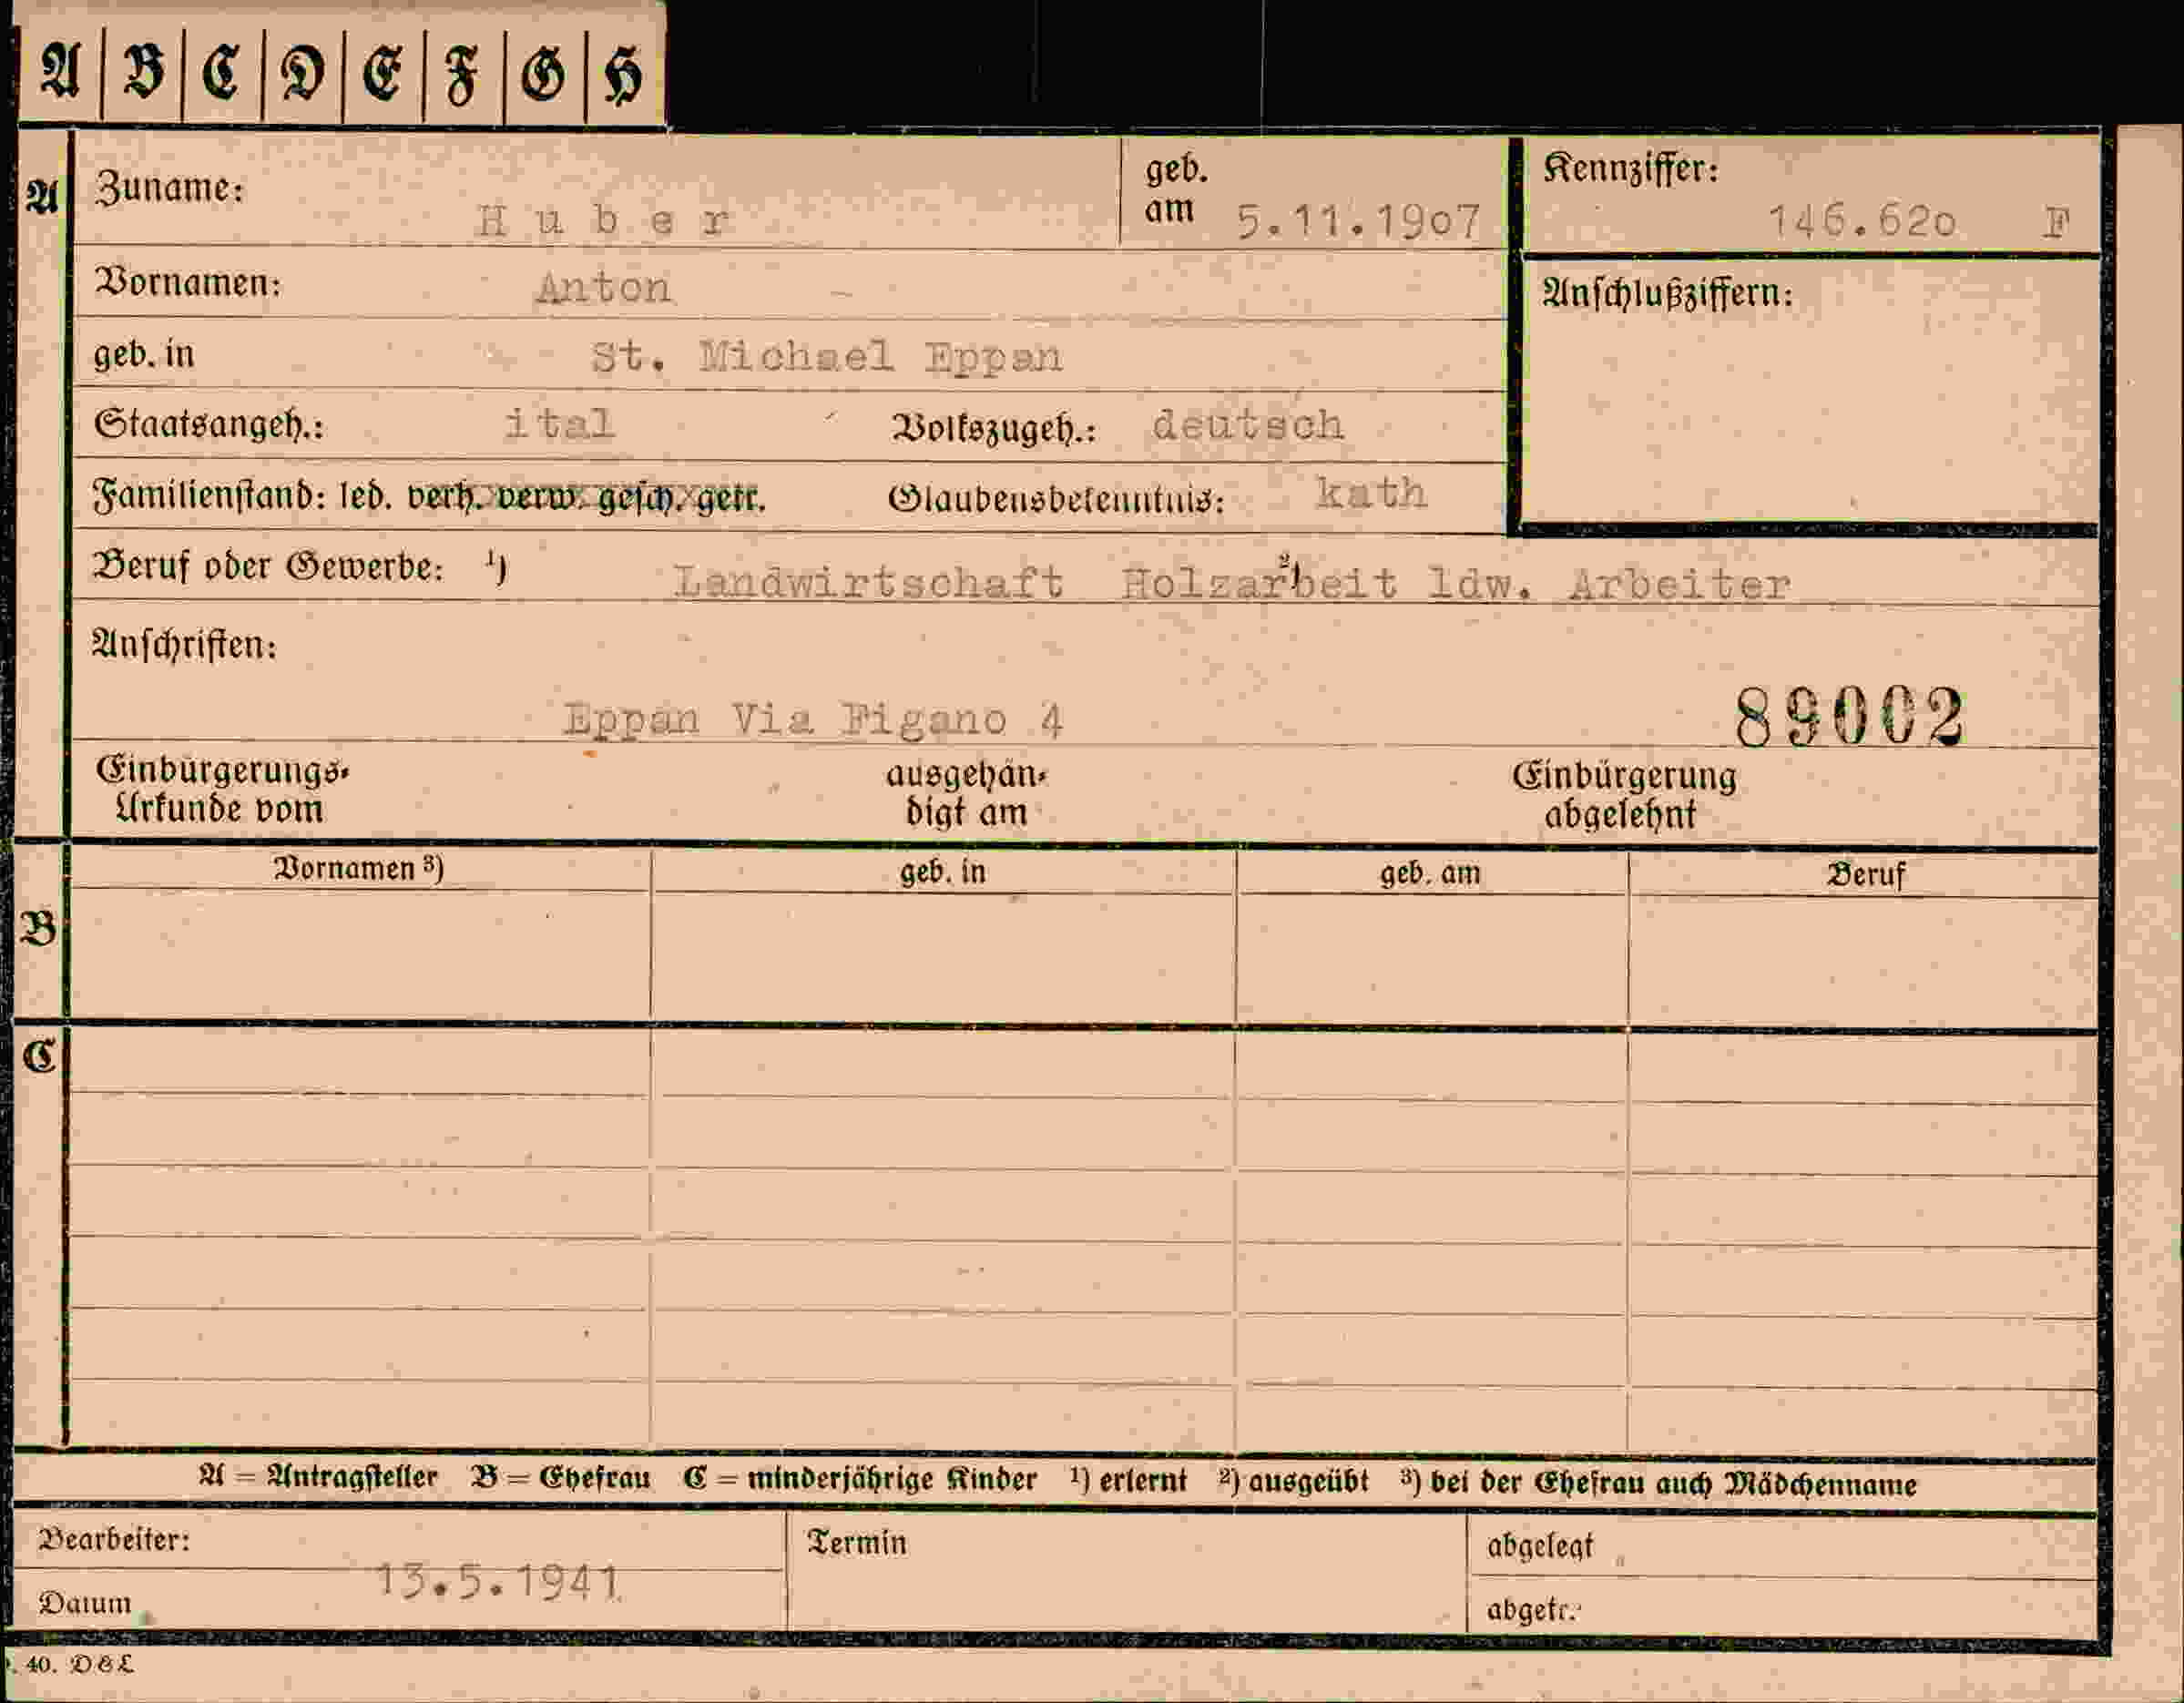 A B C D E F G H
A Zuname: Huber geb. am 5.11.1907 Kennziffer: 146.620 F
Vornamen: Anton Anschlußziffern:
geb. in St. Michael Eppan
Staatsangeh.: ital Volkszugeh.: deutsch
Familienstand: led. verh. verw. gesch. getr. Glaubensbekenntnis: kath
Beruf oder Gewerbe: ¹) Landwirtschaft ²) Holzarbeit ldw. Arbeiter
Anschriften:
Eppan Via Figano 4 89002
Einbürgerungs- ausgehän- Einbürgerung
Urkunde vom digt am abgelehnt
Vornamen ³) geb. in geb. am Beruf
B
C
A = Antragsteller B = Ehefrau C = minderjährige Kinder ¹) erlernt ²) ausgeübt ³) bei der Ehefrau auch Mädchenname
Bearbeiter: Termin abgelegt
13.5.1941
Datum abgetr.:
. 40. D & L